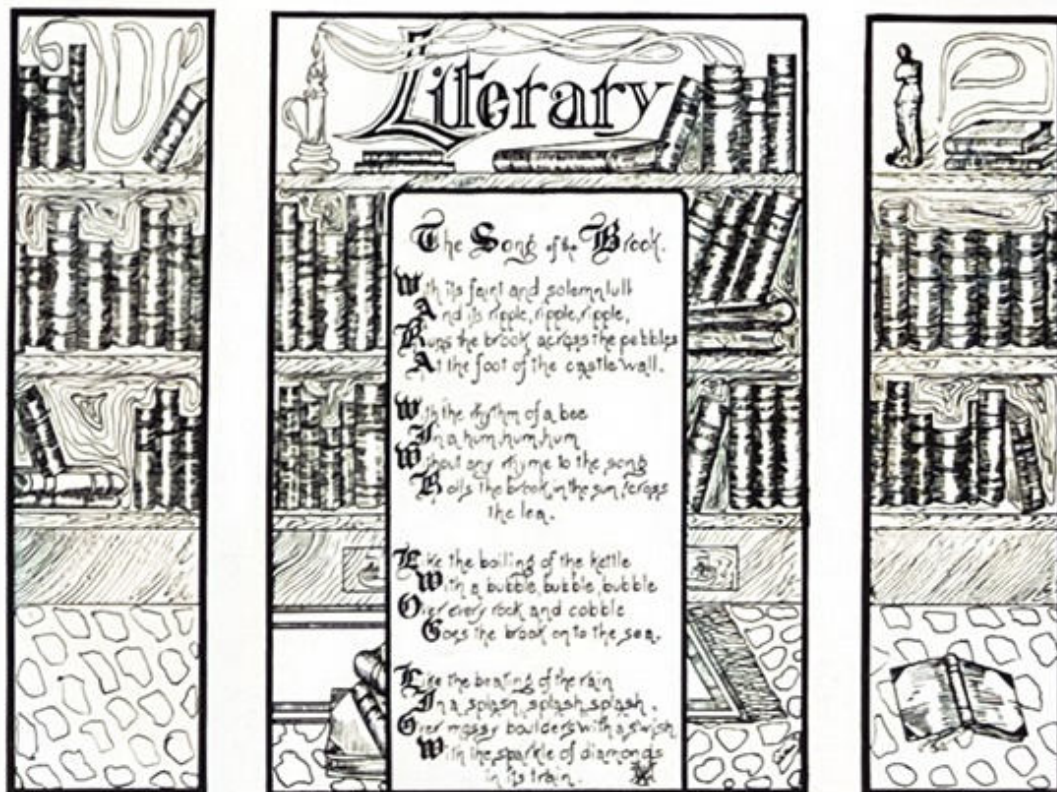 Literary
The Song of the Brook.
With its faint and solemn lull
And its ripple, ripple, ripple,
Runs the brook across the pebbles
At the foot of the castle wall.
With the rhythm of a bee
In a hum, hum, hum
Without any rhyme to the song
Boils the brook in the sun, 'cross
the lea.
Like the boiling of the kettle
With a bubble, bubble, bubble
Over every rock and cobble
Goes the brook on to the sea.
Like the beating of the rain
In a splash, splash, splash.
Over mossy boulders with a swish
With the sparkle of diamonds
in its train.